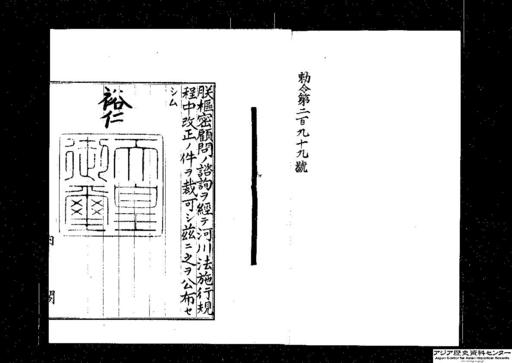 勅令第二百九十九號
朕樞密顧問ノ諮詢ヲ經テ河川法施行規
程中改正ノ件ヲ裁可シ茲ニ之ヲ公布セ
シム
裕仁
天皇
御璽
内閣
アジア歴史資料センター
Japan Center for Asian Historical Records